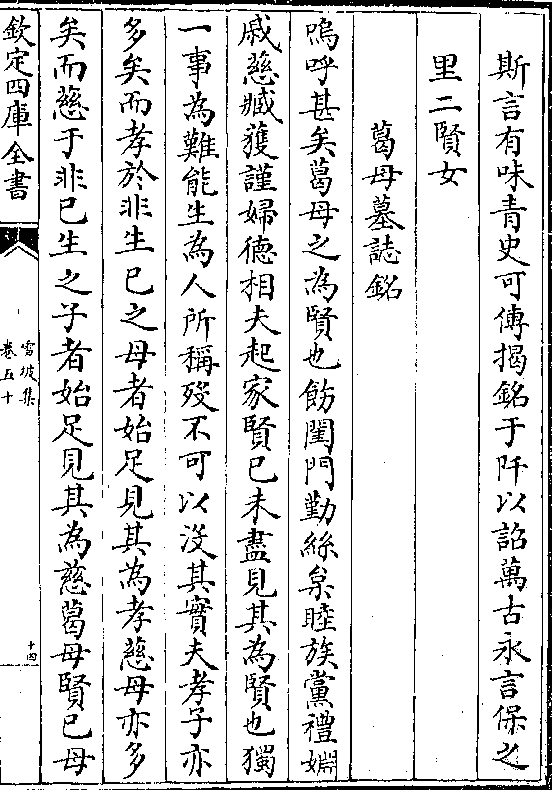 斯言有味青史可傳揭銘于阡以詔萬古永言保之
里二賢女
葛母墓誌銘
嗚呼甚矣葛母之為賢也飭閨門勤絲枲睦族黨禮婣
戚慈臧獲謹婦德相夫起家賢已未盡見其為賢也獨
一事為難能生為人所稱歿不可以沒其實夫孝子亦
多矣而孝於非生已之母者始足見其為孝慈母亦多
矣而慈于非已生之子者始足見其為慈葛母賢已母
欽定四庫全書
雪坡集
卷五十
十四